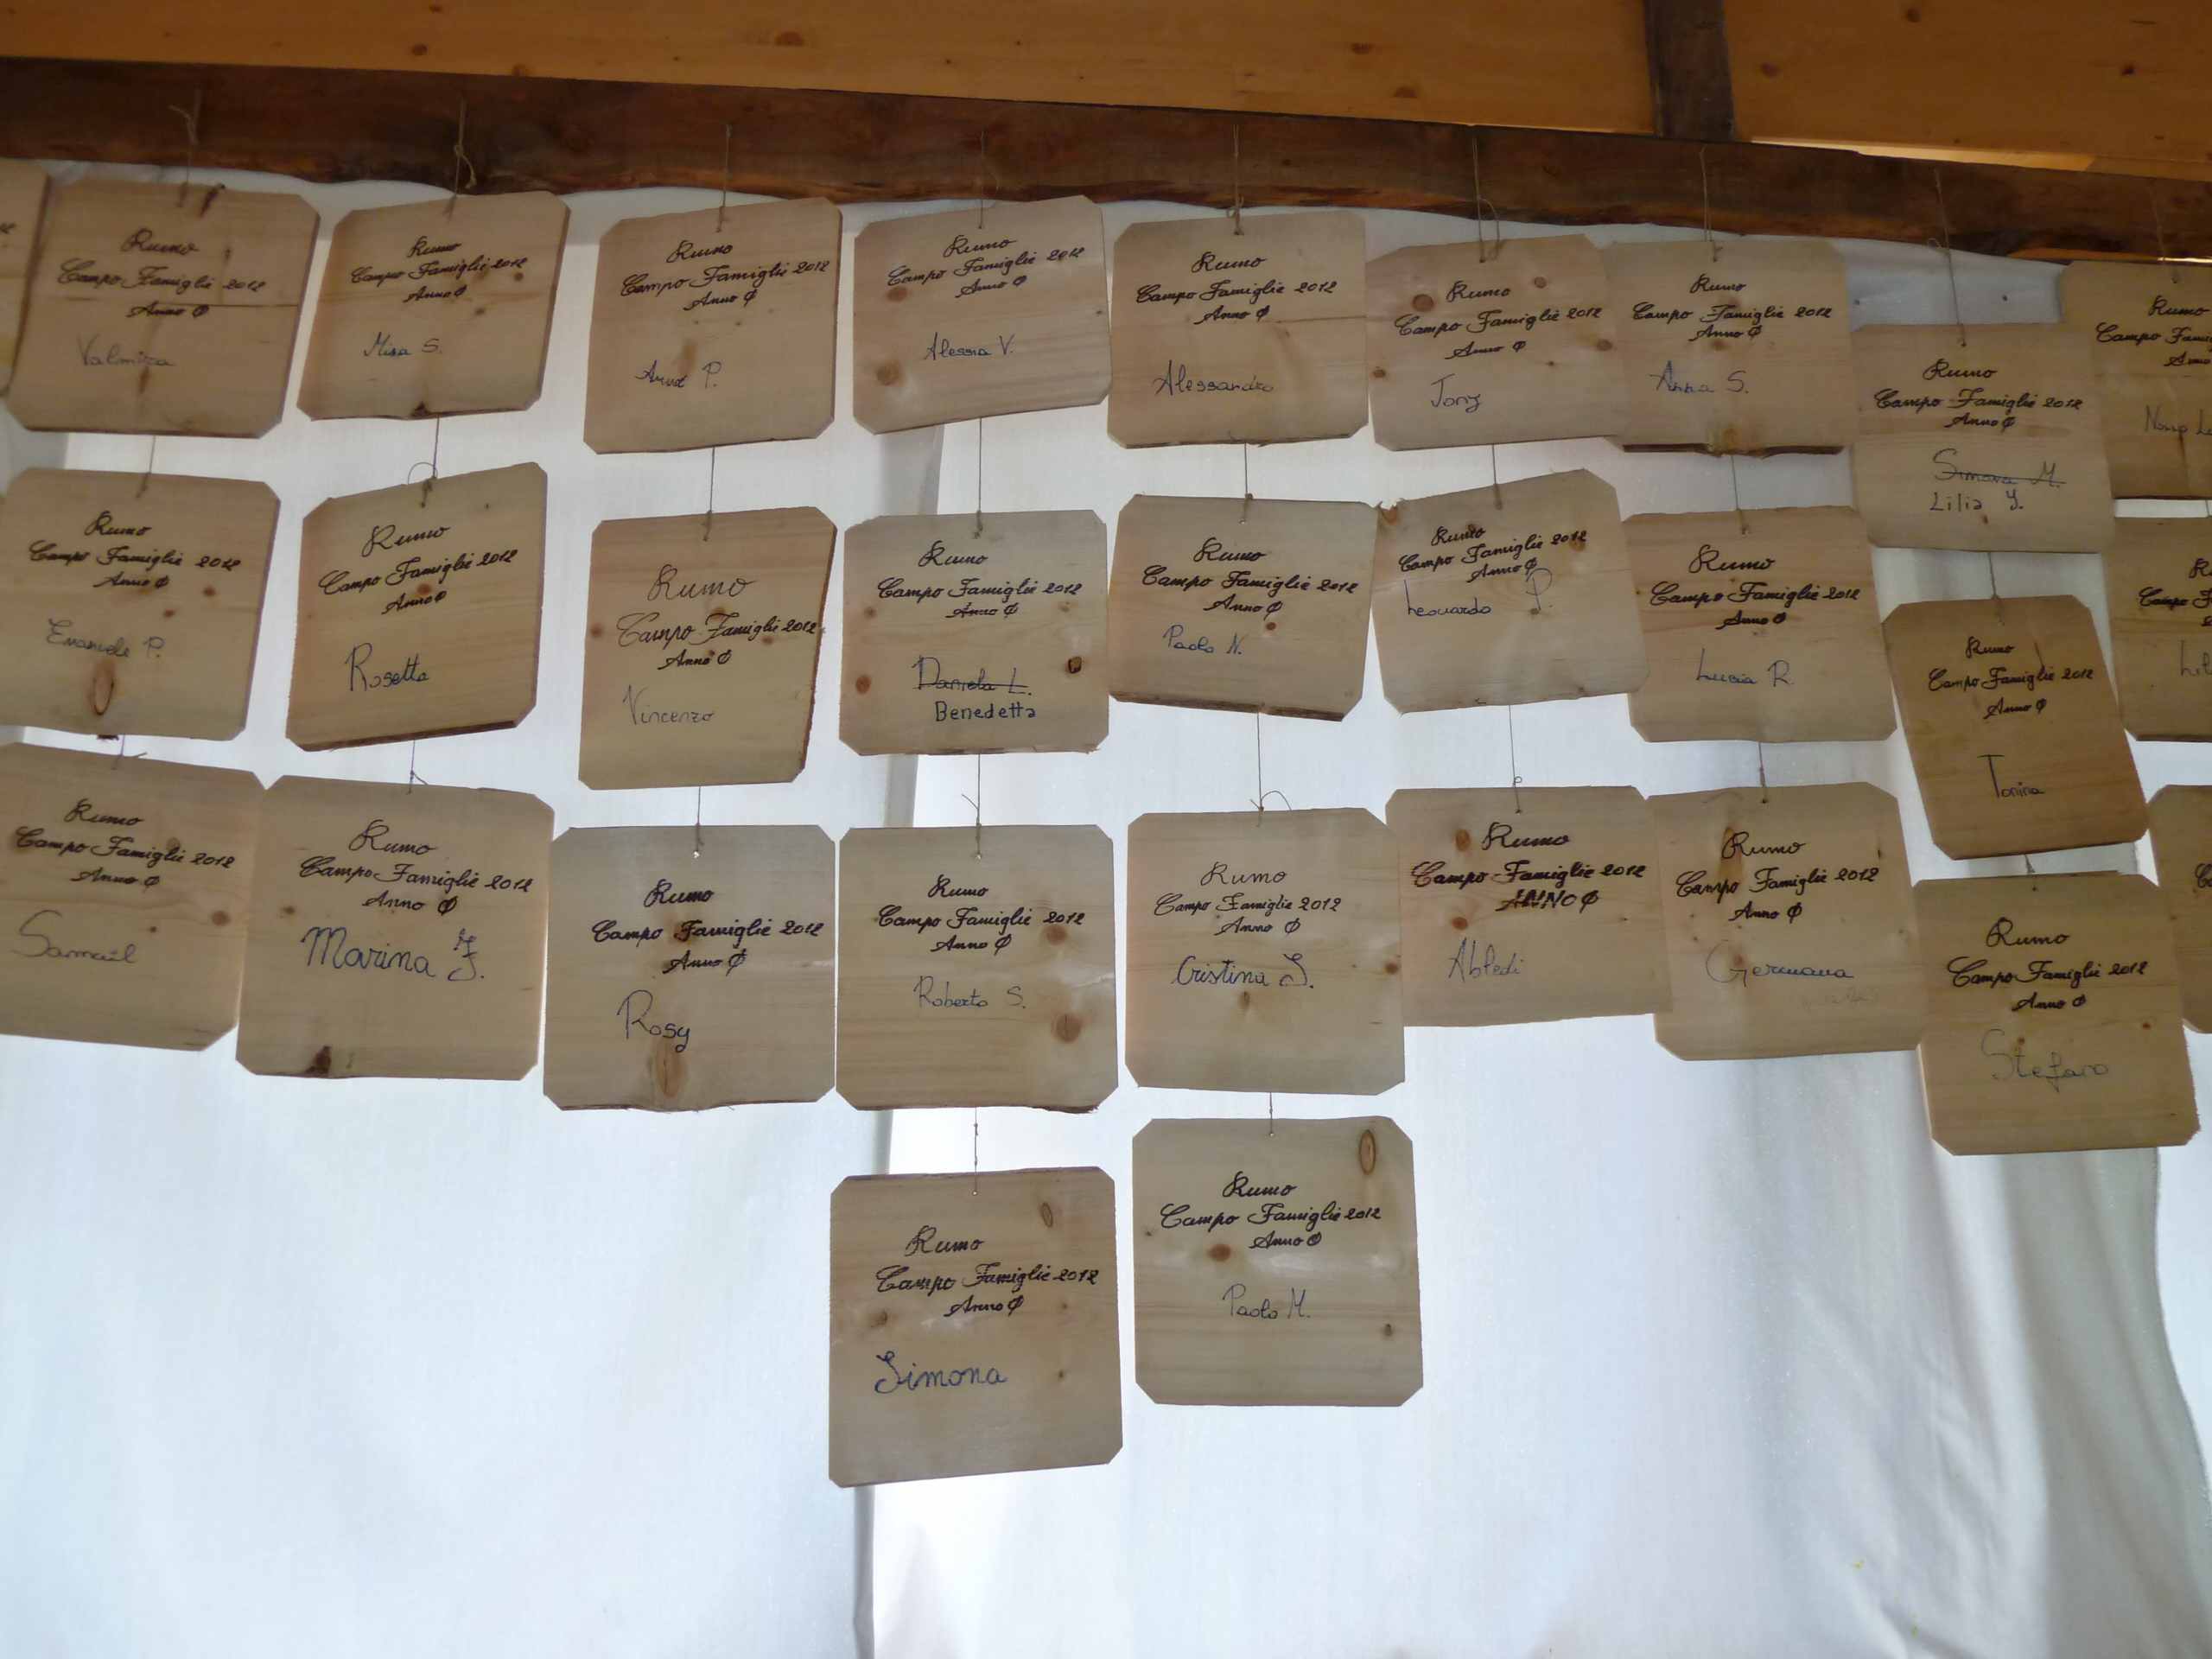 Rumo
Campo Famiglie 2012
Anno Ø
Valmira
Rumo
Campo Famiglie 2012
Anno Ø
Misa S.
Rumo
Campo Famiglie 2012
Anno Ø
P.
Rumo
Campo Famiglie 2012
Anno Ø
Alessia V.
Rumo
Campo Famiglie 2012
Anno Ø
Alessandro
Rumo
Campo Famiglie 2012
Anno Ø
Jony
Rumo
Campo Famiglie 2012
Anno Ø
Anna S.
Rumo
Campo Famiglie 2012
Anno Ø
Simona M.
Lilia J.
Rumo
Campo
Rumo
Campo Famiglie 2012
Anno Ø
Emanuele P.
Rumo
Campo Famiglie 2012
Anno Ø
Rosetta
Rumo
Campo Famiglie 2012
Anno Ø
Vincenzo
Rumo
Campo Famiglie 2012
Anno Ø
Daniela L.
Benedetta
Rumo
Campo Famiglie 2012
Anno Ø
Paolo N.
Rumo
Campo Famiglie 2012
Anno Ø
Leonardo P.
Rumo
Campo Famiglie 2012
Anno Ø
Lucia R.
Rumo
Campo Famiglie 2012
Anno Ø
Tonina
Campo
Rumo
Campo Famiglie 2012
Anno Ø
Samuel
Rumo
Campo Famiglie 2012
Anno Ø
Marina F.
Rumo
Campo Famiglie 2012
Anno Ø
Rosy
Rumo
Campo Famiglie 2012
Anno Ø
Roberto S.
Rumo
Campo Famiglie 2012
Anno Ø
Cristina S.
Rumo
Campo Famiglie 2012
ANNO Ø
Abledi
Rumo
Campo Famiglie 2012
Anno Ø
Germana
Rumo
Campo Famiglie 2012
Anno Ø
Stefano
Rumo
Campo Famiglie 2012
Anno Ø
Simona
Rumo
Campo Famiglie 2012
Anno Ø
Paolo M.